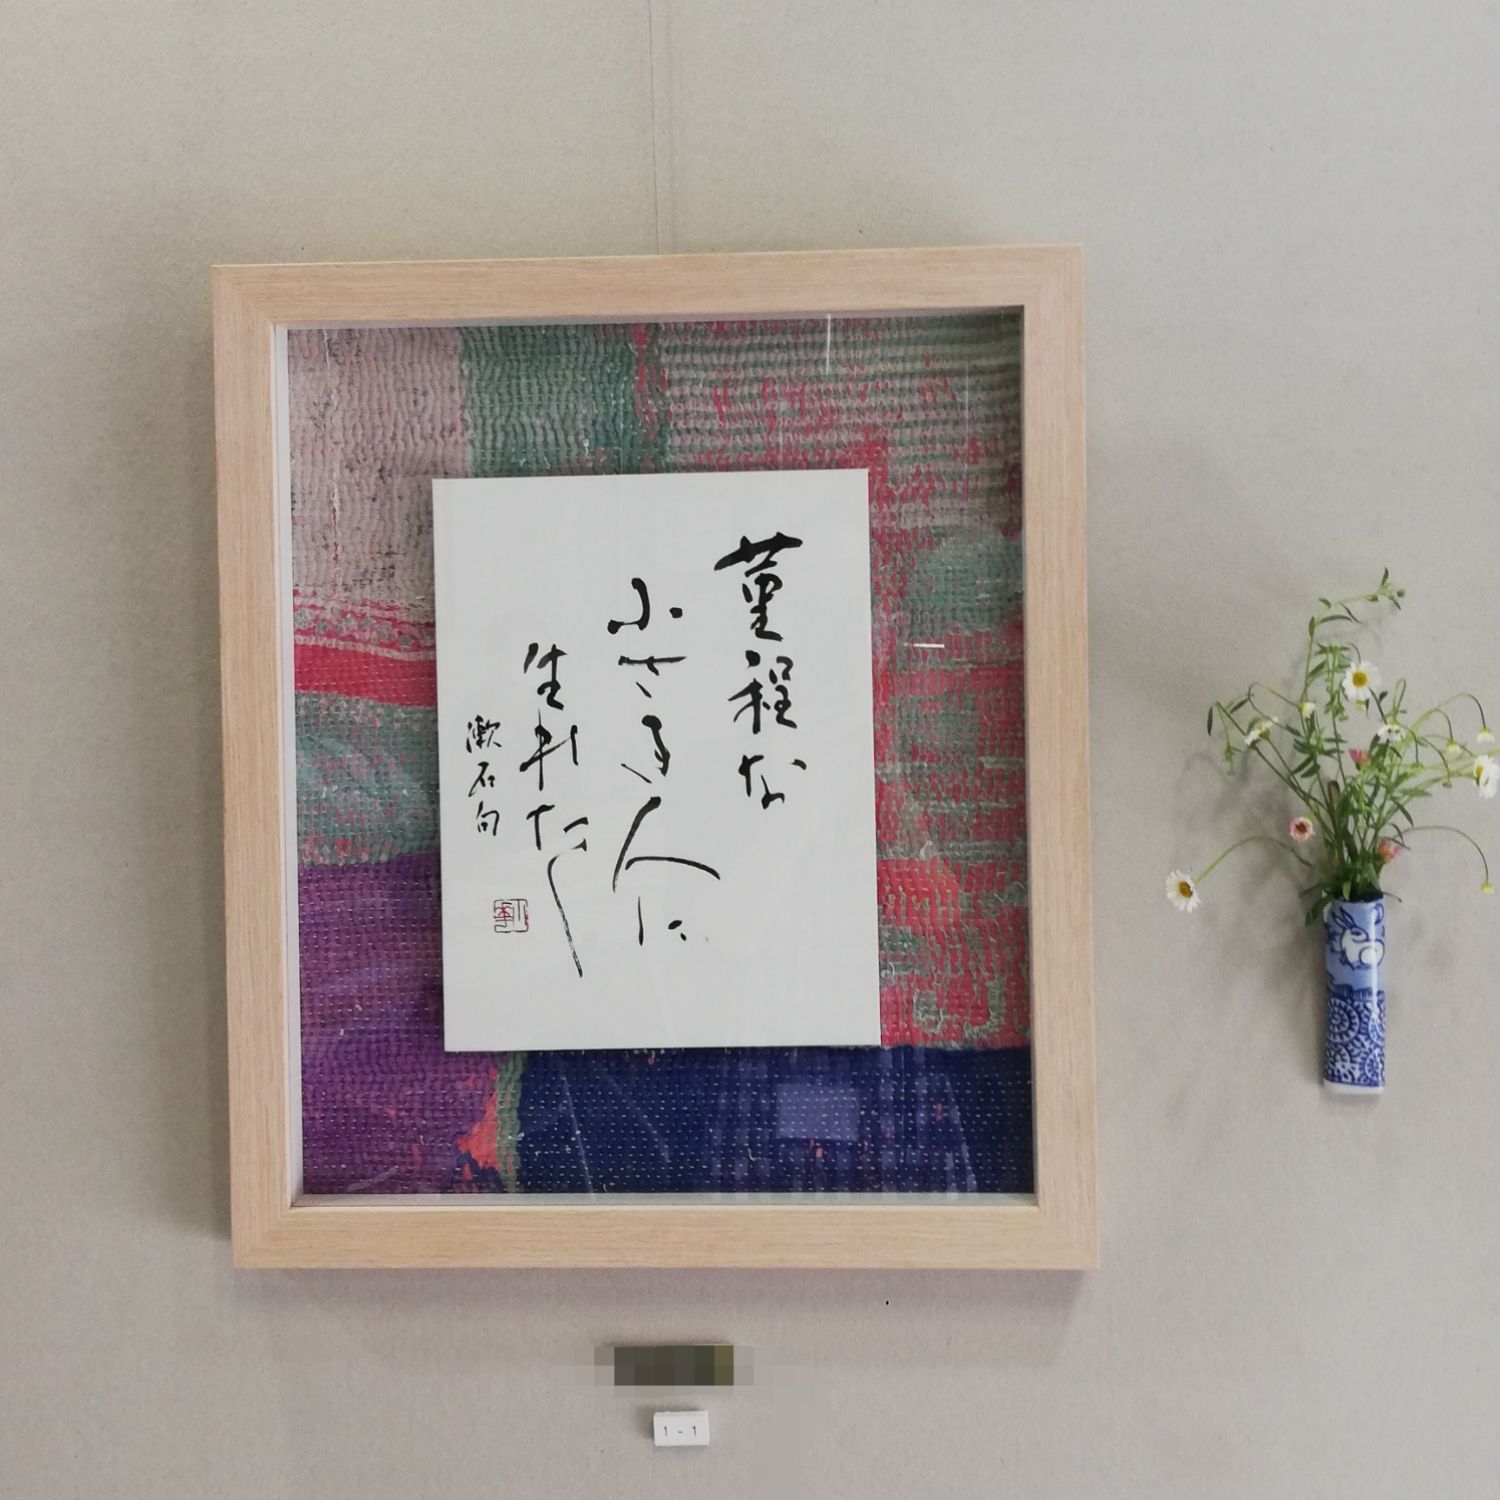 菫程な
小さき人に
生れたし
漱石句
1-1